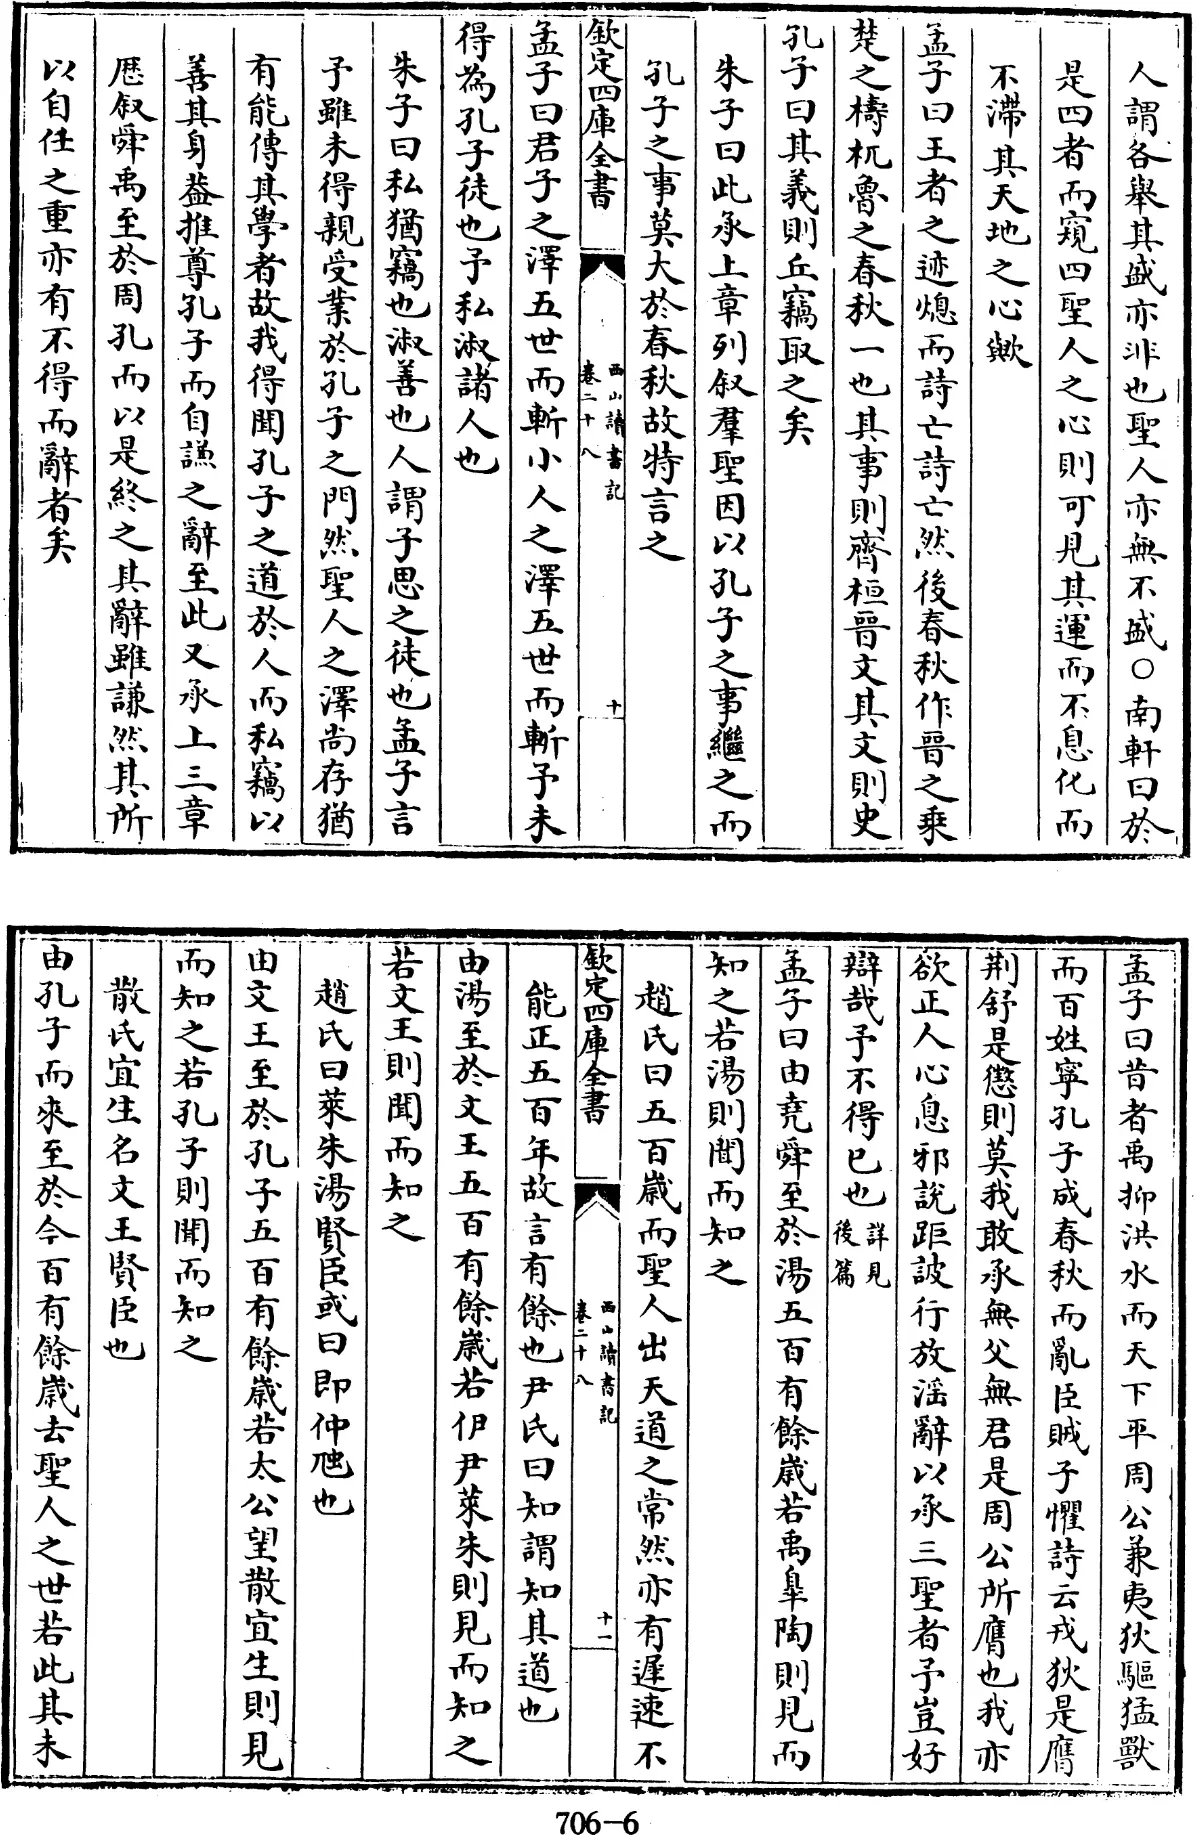 人謂各舉其盛亦非也聖人亦無不盛○南軒曰於
是四者而窺四聖人之心則可見其運而不息化而
不滯其天地之心歟
孟子曰王者之迹熄而詩亡詩亡然後春秋作晉之乘
楚之檮杌魯之春秋一也其事則齊桓晉文其文則史
孔子曰其義則丘竊取之矣
朱子曰此承上章列叙羣聖因以孔子之事繼之而
孔子之事莫大於春秋故特言之
欽定四庫全書
西山讀書記
卷二十八
十
孟子曰君子之澤五世而斬小人之澤五世而斬予未
得為孔子徒也予私淑諸人也
朱子曰私猶竊也淑善也人謂子思之徒也孟子言
予雖未得親受業於孔子之門然聖人之澤尚存猶
有能傳其學者故我得聞孔子之道於人而私竊以
善其身葢推尊孔子而自謙之辭至此又承上三章
歴叙舜禹至於周孔而以是終之其辭雖謙然其所
以自任之重亦有不得而辭者矣
孟子曰昔者禹抑洪水而天下平周公兼夷狄驅猛獸
而百姓寧孔子成春秋而亂臣賊子懼詩云戎狄是膺
荆舒是懲則莫我敢承無父無君是周公所膺也我亦
欲正人心息邪說距詖行放滛辭以承三聖者予豈好
辯哉予不得已也詳見後篇
孟子曰由堯舜至於湯五百有餘歲若禹臯陶則見而
知之若湯則聞而知之
趙氏曰五百歲而聖人出天道之常然亦有遲速不
欽定四庫全書
西山讀書記
卷二十八
十一
能正五百年故言有餘也尹氏曰知謂知其道也
由湯至於文王五百有餘歲若伊尹萊朱則見而知之
若文王則聞而知之
趙氏曰萊朱湯賢臣或曰即仲虺也
由文王至於孔子五百有餘歲若太公望散宜生則見
而知之若孔子則聞而知之
散氏宜生名文王賢臣也
由孔子而來至於今百有餘歲去聖人之世若此其未
706-6